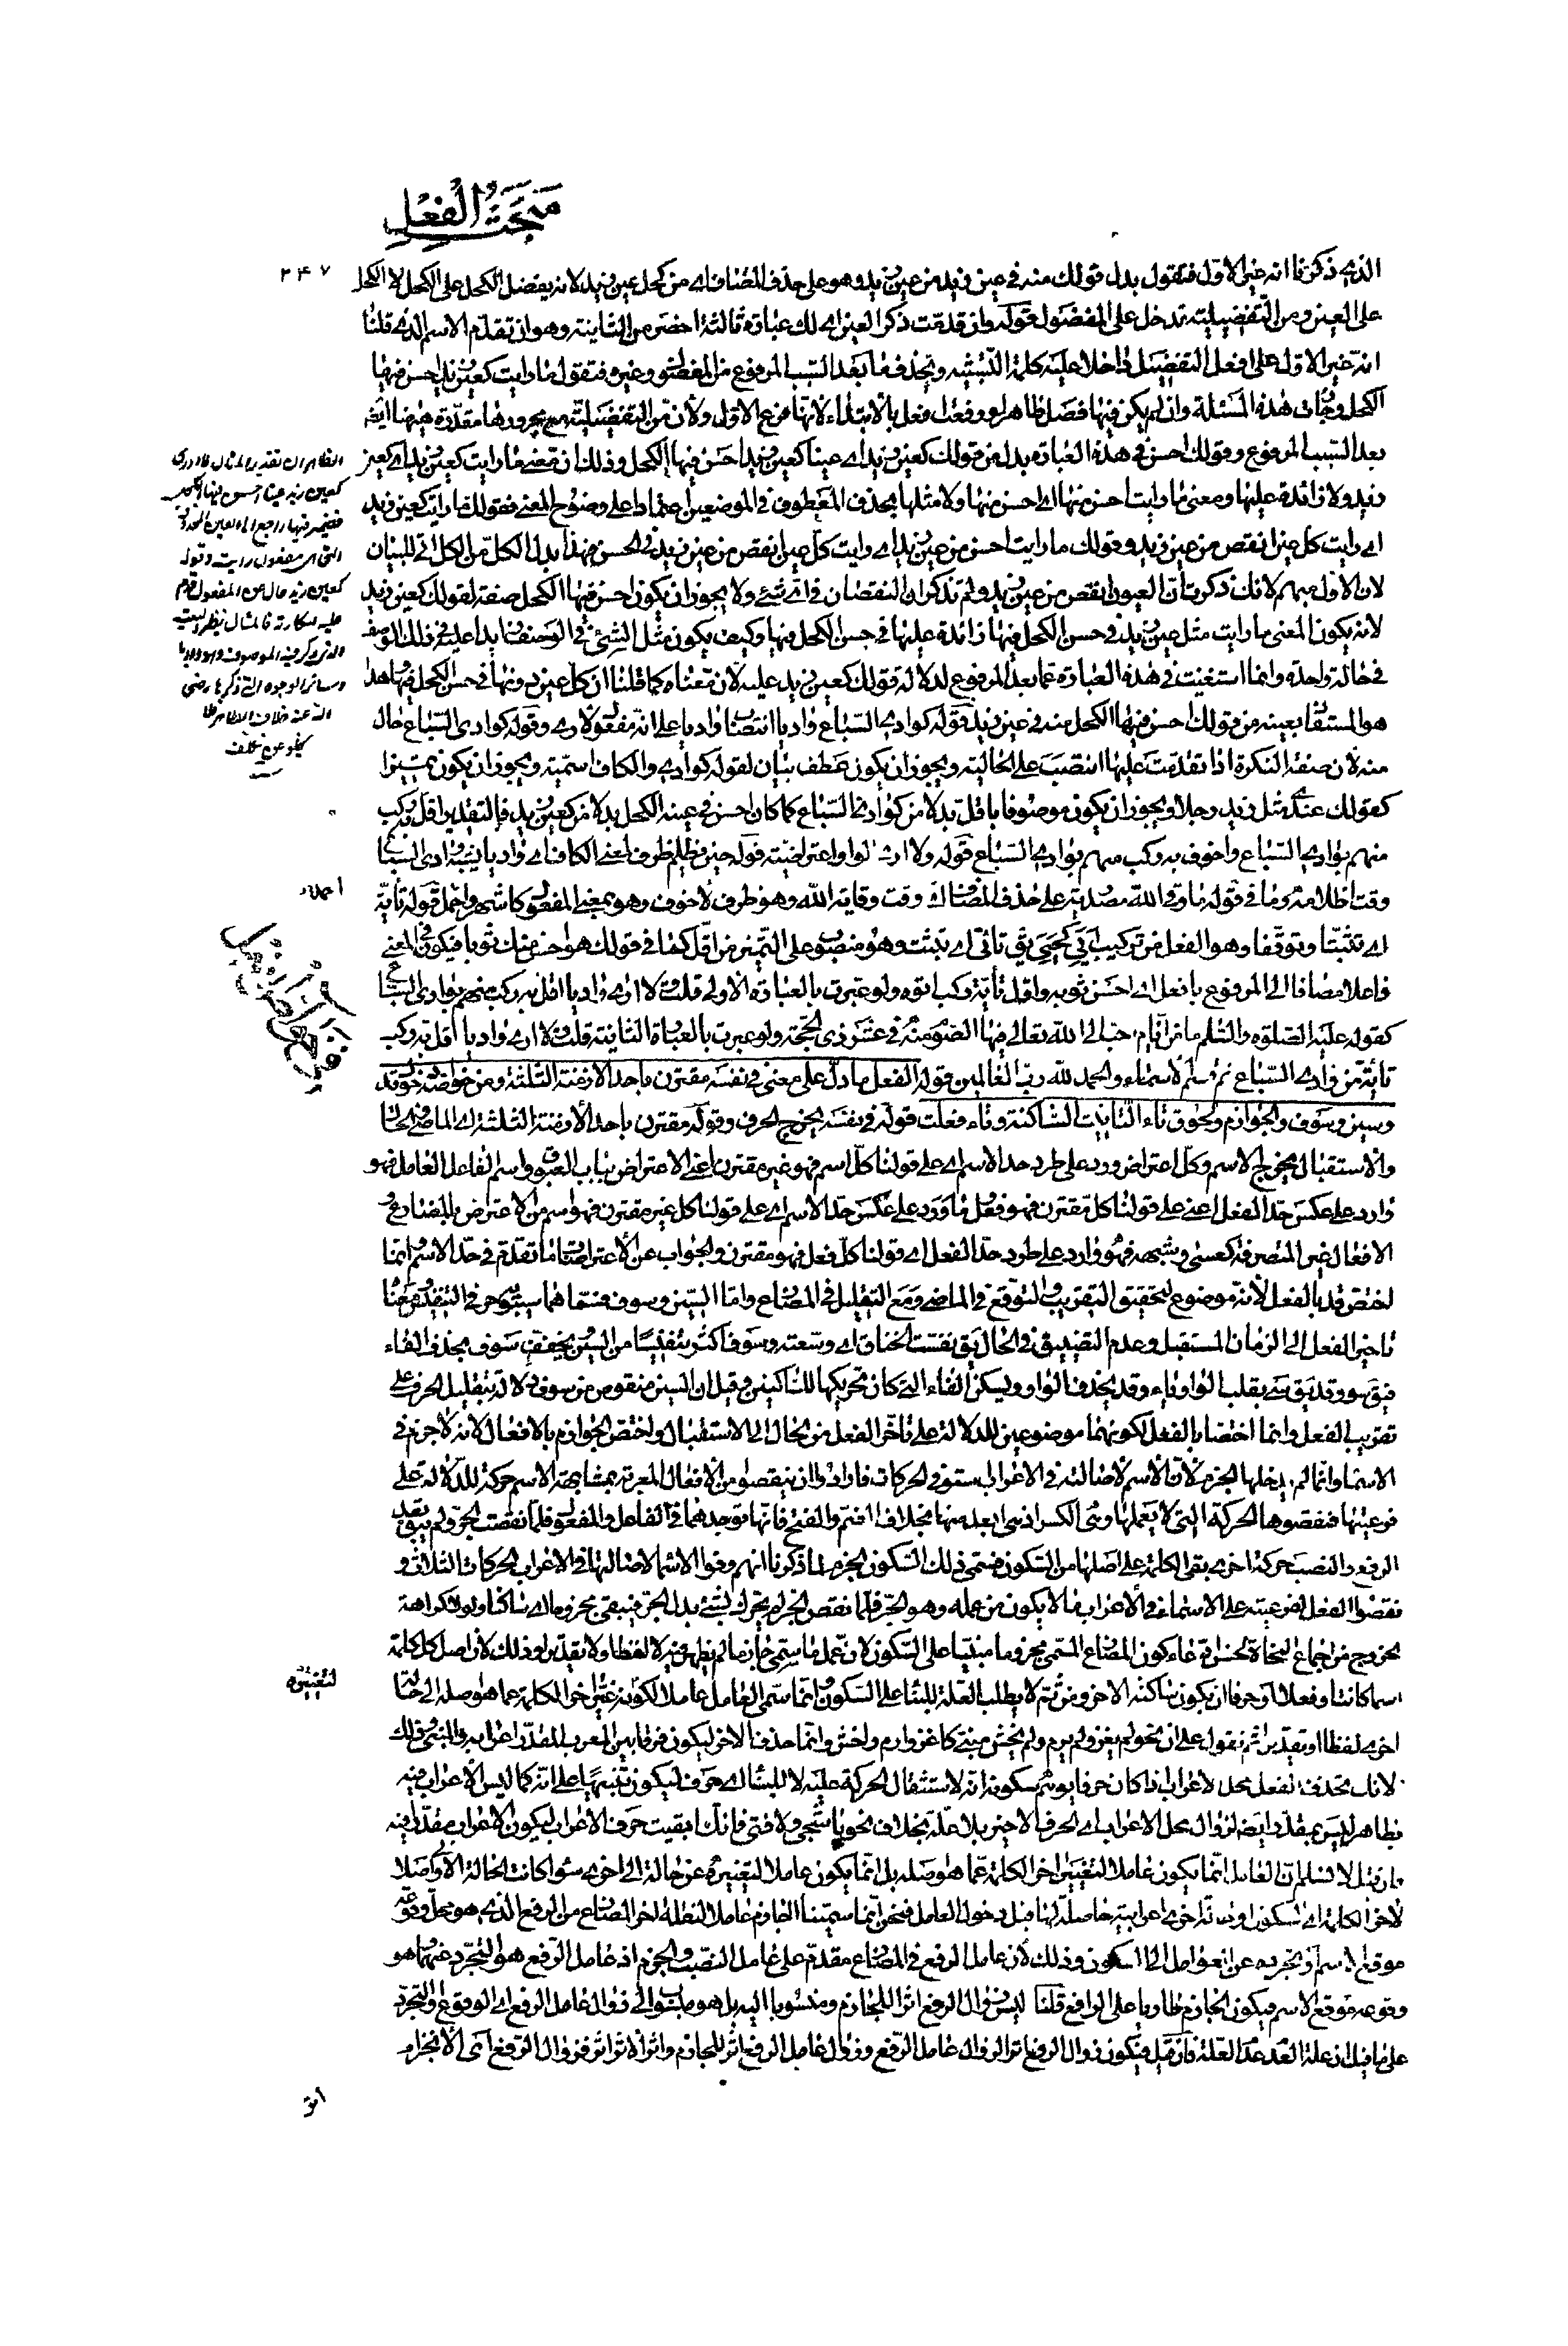 مبحث الفعل
٢٤٧
الذي ذكرنا انه غير الاول فتقول بدل قولك منه في عين زيد من عين زيد وهو على حذف المضاف اي من كحل عين زيد لانه يفضل الكحل على الكحل لا الكحل
على العين ومن التفضيلية تدخل على المفضول قوله وان قدمت ذكر العين اي لك عبارة ثالثة اخصر من الثانية وهو ان تقدم الاسم الذي قلنا
انه غير الاول على افعل التفضيل داخلا عليه كلمة التشبيه وتحذف ما بعد السبب المرفوع من المفضول وغيره فتقول ما رايت كعين زيد احسن فيها
الكحل وجاءت هذه المسئلة وان لم يكن فيها فصل ظاهر لو رفعت افعل بالابتداء لانها فرع الاول ولان من التفضيلية مع مجرورها مقدرة ههنا ايضا
بعد السبب المرفوع وقولك احسن في هذه العبارة بدل من قولك كعين زيد اي عينا كعين زيد احسن فيها الكحل وذلك ان معنى ما رايت كعين زيد اي كعين
زيد ولا زائدة عليها ومعنى ما رايت احسن منها اي احسن منها ولا مثلها بحذف المعطوف في الموضعين اعتمادا على وضوح المعنى فقولك ما رايت كعين زيد
اي رايت كل عين انقص من عين زيد وقولك ما رايت احسن من عين زيد اي رايت كل عين انقص من عين زيد في الحسن فهذا بدل الكل من الكل اتى للبيان
لان الاول مبهم لانك ذكرت ان العيون انقص من عين زيد ولم تذكر ان النقصان في اي شيء ولا يجوز ان يكون احسن فيها الكحل صفة لقولك كعين زيد
لانه يكون المعنى ما رايت مثل عين زيد في حسن الكحل فيها زائدة عليها في حسن الكحل فيها وكيف يكون مثل الشيء في الوصف زايدا عليه في ذلك الوصف
في حالة واحدة وانما استغنيت في هذه العبارة عما بعد المرفوع لدلالة قولك كعين زيد عليه لان معناه كما قلنا ان كل عين دونها في حسن الكحل فيها وهذا
هو المستفاد بعينه من قولك احسن فيها الكحل منه في عين زيد قوله كوادي السباع واديا انتصب واديا على انه مفعول لا ارى وقوله كوادي السباع حال
منه لان صفة النكرة اذا تقدمت عليها انتصبت على الحالية ويجوز ان يكون عطف بيان لقوله كوادي والكاف اسمية ويجوز ان يكون تمييزا
كقولك عندي مثل زيد رجلا ويجوز ان يكون موصوفا باقل بدلا من كوادي السباع كما كان احسن في عينه الكحل بدلا من كعين زيد فالتقدير اقل به ركب
منهم بوادي السباع واخوف به ركب منهم بوادي السباع قوله ولا ارى الواو اعتراضية قوله حين يظلم ظرف لمعنى الكاف اي واديا يشبه وادي السباع
وقت اظلامه وما في قوله ما وقى الله مصدرية على حذف المضاف اي وقت وقاية الله وهو ظرف لاخوف وهو بمعنى المفعول كاشهر واحمد قوله تاية
اي تثبتا وتوقفا وهو الفعل من تركيب ايي كحيي يق تائى اي تثبت وهو منصوب على التمييز من اقل كما في قولك هو احسن منك ثوبا فيكون في المعنى
فاعلا مضافا الى المرفوع بافعل اي احسن ثوبه واقل تاية ركب اتوه ولو عبرت بالعبارة الاولى قلت ولا ارى واديا اقل به ركب منهم بوادي السباع
كقوله عليه الصلوة والسلم ما من ايام احب الى الله تعالى فيها الصوم منه في عشر ذي الحجة ولو عبرت بالعبارة الثانية قلت ولا ارى واديا اقل به ركب
تاية من وادي السباع تم قسم الاسماء والحمد لله رب العالمين قوله الفعل ما دل على معنى في نفسه مقترن باحد الازمنة الثلثة ومن خواصه دخول قد
وسين وسوف والجوازم ولحوق تاء التانيث الساكنة وتاء فعلت قوله في نفسه يخرج الحرف وقوله مقترن باحد الازمنة الثلثة اي الماضي والحال
والاستقبال يخرج الاسم وكل اعتراض ورد على طرد حد الاسم اي على قولنا كل اسم فهو غير مقترن اعني الاعتراض بباب الغبوق واسم الفاعل العامل فهو
وارد على عكس حد الفعل اعني على قولنا كل مقترن فهو فعل وما ورد على عكس حد الاسم اي على قولنا كل غير مقترن فهو اسم من الاعتراض بالمضارع و
الافعال غير المتصرفة كعسى وشبهه فهو وارد على طرد حد الفعل اي قولنا كل فعل فهو مقترن والجواب عن الاعتراضات ما تقدم في حد الاسم وانما
اختص قد بالفعل لانه موضوع لتحقيق التقريب والتوقع في الماضي ومع التقليل في المضارع واما السين وسوف فسماهما سيبويه حرفي التنفيس ومعناه
تاخير الفعل الى الزمان المستقبل وعدم التضييق في الحال يق نفست الخناق اي وسعته وسوف اكثر تنفيسا من السين ويخفف سوف بحذف الفاء
فيق سو وقد يق سي بقلب الواو ياء وقد يحذف الواو ويسكن الفاء التي كان تحريكها للساكنين وقيل ان السين منقوص من سوف دلالة بتقليل الحروف على
تقريب الفعل وانما اختصا بالفعل لكونهما موضوعين للدلالة على تاخر الفعل من الحال الى الاستقبال واختص الجوازم بالافعال لانه لا جزم في
الاسماء وانما لم يدخلها الجزم لان الاسم لاصالته في الاعراب مستوفي الحركات فارادوا ان ينقصوا من الافعال المعربة بمشابهة الاسم حركة للدلالة على
فرعيتها فنقصوها الحركة التي لا يعملها وهي الكسر اذ هي ابعد منها بخلاف الضم والفتح فانها توجدهما في الفاعل والمفعول فلما نقصت الجر ولم يبق بعد
الرفع والنصب حركة اخرى بقي الكلمة على اصلها من السكون فسمي ذلك السكون الجزم لما ذكرنا انهم وفوا الاسماء لاصالتها في الاعراب الحركات الثلاث و
نقصوا الفعل لفرعيته على الاسماء في الاعراب ما لا يكون من عمله وهو الجر فلما نقص الجر لم يحرك بشيء بدل الجر فبقي مجزوما اي ساكنا ولولا كراهة
الخروج من اجماع النحاة لحسن ادعاء كون المضارع المسمى مجزوما مبنيا على السكون لان عمل ما سمي جازما لم يظهر فيه لا لفظا ولا تقديرا وذلك لان اصل كل كلمة
اسما كانت او فعلا او حرفا ان يكون ساكنة الاخر ومن ثم لا يطلب العلة للبناء على السكون وانما سمى العامل عاملا لكونه غير اخر الكلمة عما هو اصله الى حالة
اخرى لفظا او تقديرا ثم نقول على ان نحو لم يغز ولم يرم ولم يخش مبني كاغز وارم واخش وانما حذف الاخر ليكون فرقا بين المعرب المقدر اعرابه والمبني وذلك
لانك تحذف الفعل محل الاعراب اذا كان حرفا يوهم سكونه انه لاستثقال الحركة عليه لا للبناء اي حرف ليكون تنبيها على انه كما ليس الاعراب فيه
بظاهر ليس بمقدر ايضا لزوال محل الاعراب اي الحرف الاخير بلا علة بخلاف نحو يا شجي ولا فتى فانك ابقيت حرف الاعراب ليكون الاعراب مقدرا فيه
فان قيل لا نسلم ان العامل انما يكون عاملا لتغييره اخر الكلمة عما هو اصله بل انما يكون عاملا لتغييره عن حالة الى اخرى سواء كانت الحالة الاولى اصلا
لاخر الكلمة اي السكون او حالة اخرى اعرابية حاصلة لها قبل دخول العامل فنحن انما سمينا الجازم عاملا لنقله اخر المضارع من الرفع الذي هو محل وقوعه
موقع الاسم او تجرده عن العوامل الى السكون وذلك لان عامل الرفع في المضارع مقدم على عامل النصب والجزم اذ عامل الرفع هو التجرد عنهما او هو
وقوعه موقع الاسم فيكون الجازم طاريا على الرافع قلنا ليس زوال الرفع اثرا للجازم ومنسوبا اليه بل هو منسوب الى زوال عامل الرفع اي الوقوع او التجرد
على ما قيل ان علة العدم عدم العلة فان قيل فيكون زوال الرفع اثر الزوال عامل الرفع وزوال عامل الرفع اثر للجازم واثر الاثر اثر فزوال الرفع اعني الانجزام
الظاهر ان تقدير المثال ما ارى
كعين زيد عينا احسن فيها الكحل
فضمير فيها راجع الى العين المحذوفة
التي هي مفعول رايت وقوله
كعين زيد حال عن المفعول قدم
عليه لنكارته فالمثال نظير البيت
والذي ذكر فيه الموصوف وهو واديا
وسائر الوجوه التي ذكرها رضي
الله عنه خلاف الظاهر ولا
يخلو عن تكلف
احمد
لتغييره
اثر